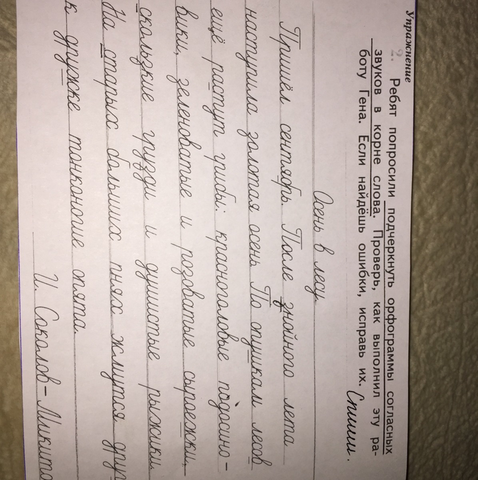 Упражнение
2. Ребят попросили подчеркнуть орфограммы согласных
звуков в корне слова. Проверь, как выполнил эту ра-
боту Гена. Если найдёшь ошибки, исправь их. Спиши.
Осень в лесу
Пришёл сентябрь. После знойного лета
наступила золотая осень. По опушкам лесов
ещё растут грибы: красноголовые подосино-
вики, зеленоватые и розоватые сыроежки,
скользкие грузди и душистые рыжики
На старых больших пнях жмутся друг
к дружке тонконогие опята.
И. Соколов-Микитов